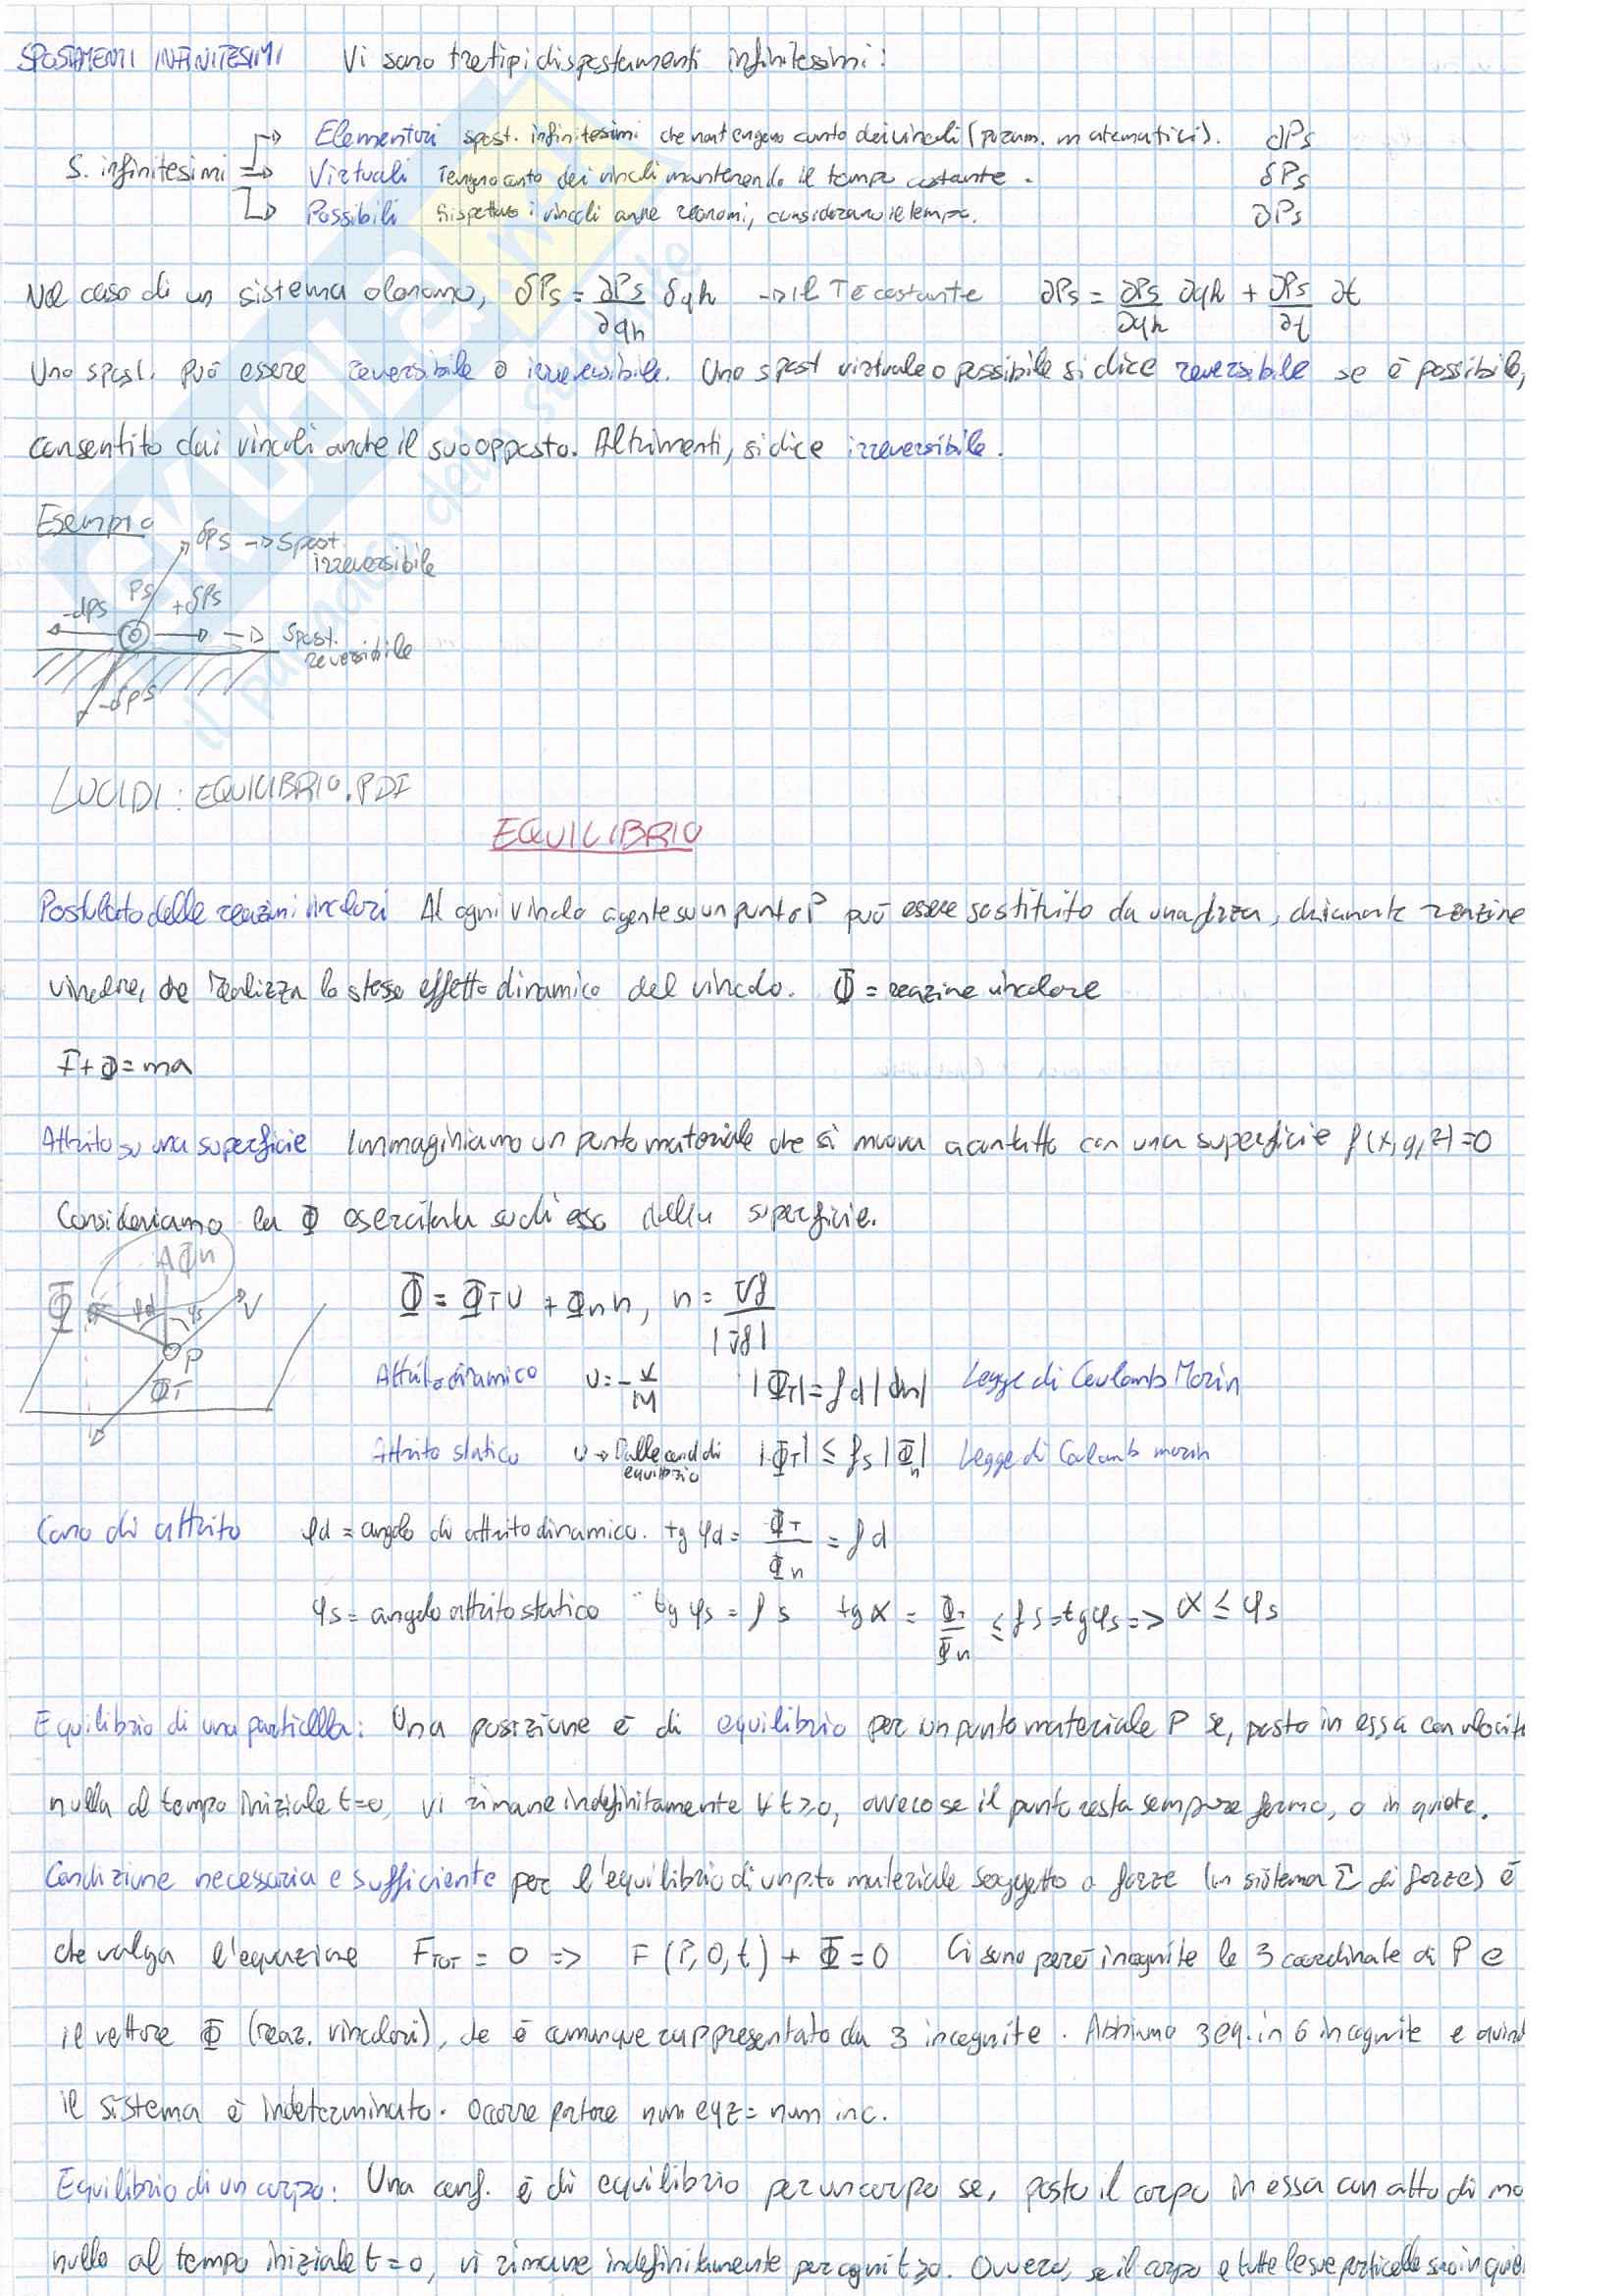 SPOSTAMENTI INFINITESIMI Vi sono tre tipi di spostamenti infinitesimi:
Elementari spost. infinitesimi che non tengono conto dei vincoli (puram. matematici). dPs
S. infinitesimi Virtuali Tengono conto dei vincoli mantenendo il tempo costante. δPs
Possibili Rispettano i vincoli anche reonomi, considerano il tempo. ∂Ps
Nel caso di un sistema olonomo, δPs = ∂Ps/∂qh δqh → il T è costante ∂Ps = ∂Ps/∂qh ∂qh + ∂Ps/∂t ∂t
Uno spost. può essere reversibile o irreversibile. Uno spost virtuale o possibile si dice reversibile se è possibile,
consentito dai vincoli anche il suo opposto. Altrimenti, si dice irreversibile.
Esempio
δPs → Spost. irreversibile
Ps
-dPs +δPs
→ Spost. reversibile
-δPs
LUCIDI: EQUILIBRIO.PDF
EQUILIBRIO
Postulato delle reazioni vincolari Al ogni vincolo agente su un punto P può essere sostituito da una forza, chiamata reazione
vincolare, che realizza lo stesso effetto dinamico del vincolo. Φ = reazione vincolare
F + Φ = ma
Attrito su una superficie Immaginiamo un punto materiale che si muova a contatto con una superficie f(x,y,z)=0
Consideriamo la Φ esercitata su di esso dalla superficie.
Φn
Φ φd φs V
P
ΦT
Φ = ΦT U + Φn n, n = ∇f/|∇f|
Attrito dinamico U = -V/|V| |ΦT| = fd |Φn| Legge di Coulomb Morin
Attrito statico U → Dalle cond di equilibrio |ΦT| ≤ fs |Φn| Legge di Coulomb morin
Cono di attrito φd = angolo di attrito dinamico. tg φd = ΦT/Φn = fd
φs = angolo attrito statico tg φs = fs tg α = ΦT/Φn ≤ fs = tg φs => α ≤ φs
Equilibrio di una particella: Una posizione è di equilibrio per un punto materiale P se, posto in essa con velocit
nulla al tempo iniziale t=0, vi rimane indefinitamente ∀ t≥0, ovvero se il punto resta sempre fermo, o in quiete.
Condizione necessaria e sufficiente per l'equilibrio di un pto materiale soggetto a forze (un sistema Σ di forze) è
che valga l'equazione FTOT = 0 => F(P,0,t) + Φ = 0 Ci sono però incognite le 3 coordinate di P e
il vettore Φ (reaz. vincolari), che è comunque rappresentato da 3 incognite. Abbiamo 3 eq. in 6 incognite e quind
il sistema è indeterminato. Occorre portare num eqz = num inc.
Equilibrio di un corpo: Una conf. è di equilibrio per un corpo se, posto il corpo in essa con atto di mo
nullo al tempo iniziale t=0, vi rimane indefinitamente per ogni t≥0. Ovvero, se il corpo e tutte le sue particelle sono in quie